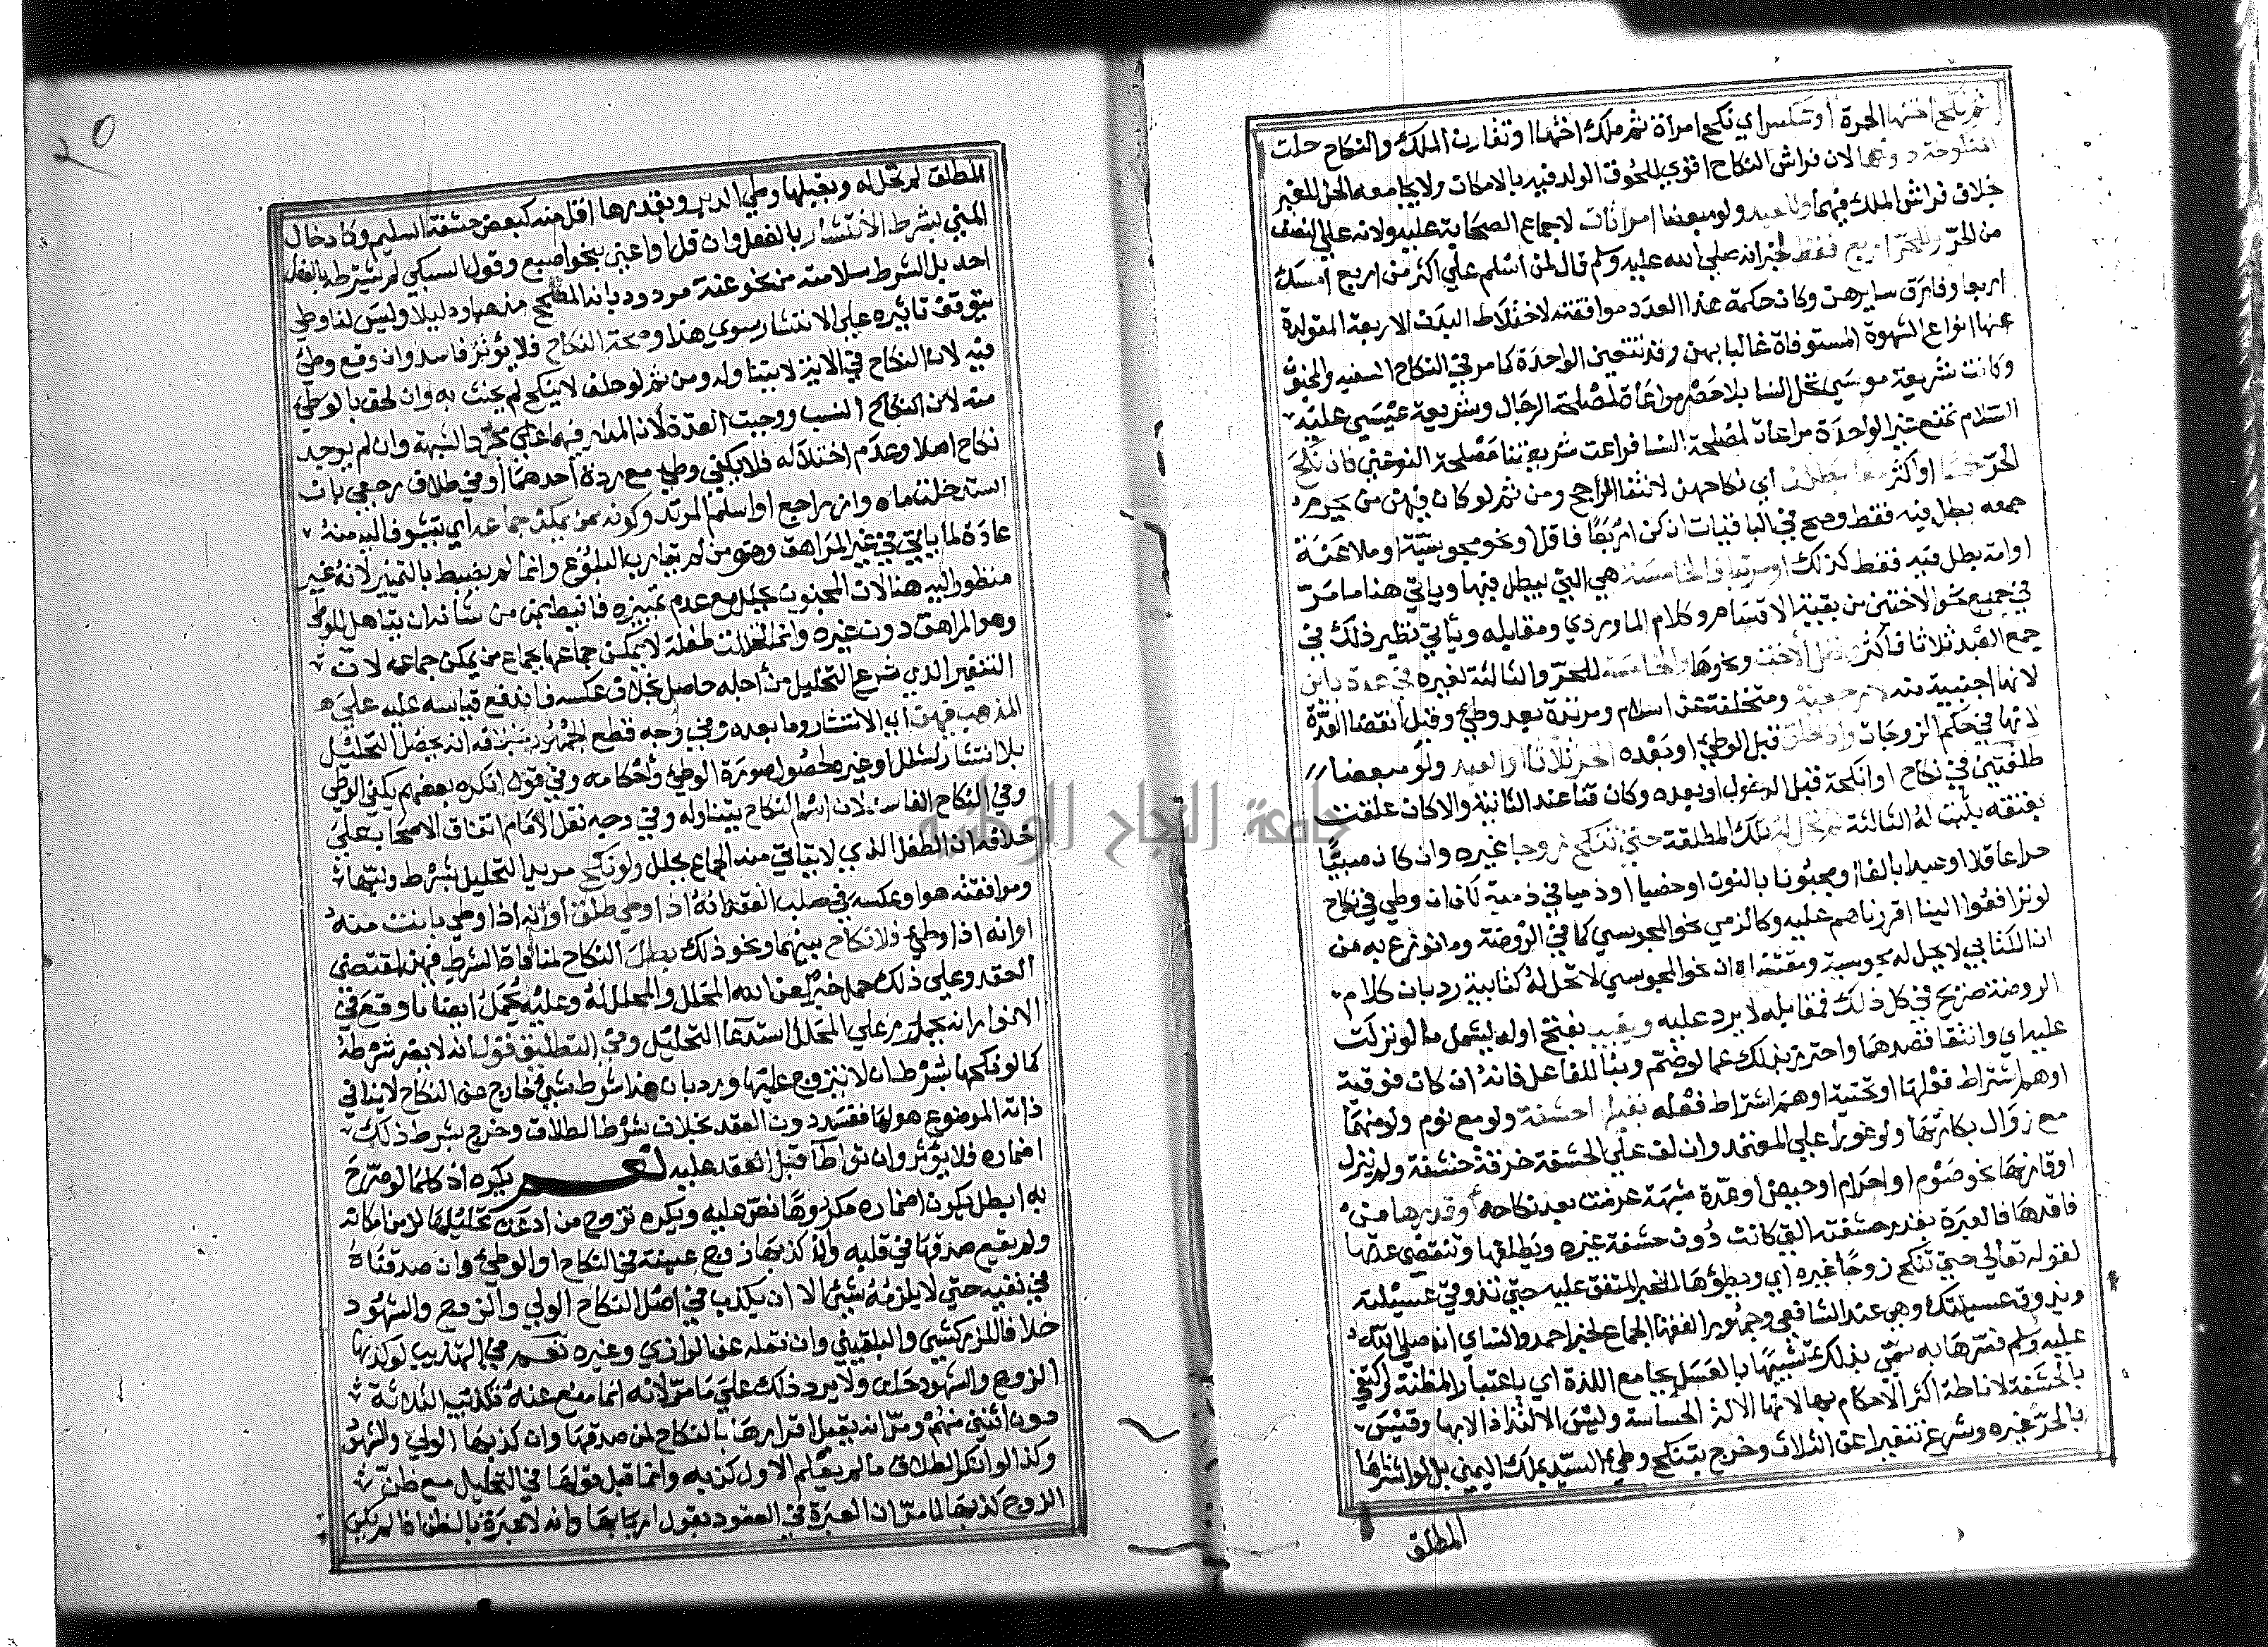 ثم نكح اختها الحرة او عكس اي نكح امراة ثم ملك اختها او تقارن الملك والنكاح حلت
المنكوحة دونها لان فراش النكاح اقوي للحوق الولد فيه بالامكان ولا يجامعه الحل للغير
بخلاف فراش الملك فيهما وللعبد ولو مبعضا امراتان لاجماع الصحابة عليه ولانه علي النصف
من الحر وللحر اربع فقط لخبر انه صلي الله عليه وسلم قال لمن اسلم علي اكثر من اربع امسك
اربعا وفارق سايرهن وكان حكمة هذا العدد موافقته لاخلاط البدن الاربعة المتولدة
عنها انواع الشهوة المستوفاة غالبا بهن وقد تتعين الواحدة كما مر في النكاح السفيه والمجنون
وكانت شريعة موسي تحل النسا بلا حصر مراعاة لمصلحة الرجال وشريعة عيسي عليه
السلام تمنع غير الواحدة مراعاة لمصلحة النسا فراعت شريعتنا مصلحة النوعين فان نكح
الحر خمسا او اكثر معا بطلن اي نكاحهن لانتفا المرجح ومن ثم لو كان فيهن من يحرم
جمعه بطل فيه فقط وصح في الباقيات ان كن اربعا فاقل او نحو مجوسية او ملاعنة
او امة بطل فيه فقط كذلك او مرتبا فالخامسة هي التي يبطل فيها وياتي هنا ما مر
في جميع نحو الاختين من بقية الاقسام وكلام الماوردي ومقابله وياتي نظير ذلك في
جمع العبد ثلاثا فاكثر وتحل الاخت ونحوها والخامسة للحر والثالثة لغيره في عدة باين
لانها اجنبية منه لا رجعية ومتخلفة عن اسلام ومرتدة بعد وطئ وقبل انقضا العدة
لانها في حكم الزوجات واذا طلق قبل الوطئ او بعده الحر ثلاثا او العبد ولو مبعضا
طلقتين في نكاح او انكحة قبل الدخول او بعده وكان قنا عند الثانية والا كان علقت
بعتقه بقيت له الثالثة لم تحل له تلك المطلقة حتي تنكح زوجا غيره وان كان صبيا
حرا عاقلا او عبدا بالغا او مجنونا بالنون او خصيا او ذميا في ذمية لكن ان وطي في نكاح
لو ترافعوا الينا اقررناهم عليه وكالذمي نحو المجوسي كما في الروضة وما نوزع به من
ان الكتابي لا يحل له مجوسية ومقتضاه ان نحو المجوسي لا تحل له كتابية رد بان كلام
الروضة صريح في كل ذلك فمقابله لا يرد عليه ويغيب بفتح اوله ليشمل ما لو نزلت
عليه اي وانتفا قصدهما واحترز بذلك عما لو ضم وبنا للفاعل فانه ان كان فوقية
اوهم اشتراط فعلها او تحتية اوهم اشتراط فعله بقبلها حشفة ولو مع نوم ولو منهما
مع زوال بكارتها ولو غورا علي المعتمد وان لف علي الحشفة خرقة خشنة ولم ينزل
او قارنها نحو صوم او احرام او حيض او عدة شبهة عرضت بعد نكاحه او قدرها من
فاقدها فالعبرة بقدر حشفته التي كانت دون حشفة غيره ويطلقها وتنقضي عدتها
لقوله تعالي حتي تنكح زوجا غيره اي ويطؤها للخبر المتفق عليه حتي تذوقي عسيلته
ويذوق عسيلتك وهي عند الشافعي وجمهور الفقها الجماع لخبر احمد والنساي انه صلي الله
عليه وسلم فسرها به سمي بذلك تشبيها بالعسل بجامع اللذة اي باعتبار المظنة واكتفي
بالحشفة لاناطة اكثر الاحكام بها لانها الالة الحساسة وليس الالتذاذ الا بها وقيس
بالحر غيره وشرع تنفيرا عن الثلاث وخرج بتنكح وطئ السيد بملك اليمين بل لو اشتراها
المطلق
المطلق لم تحل له وبقبلها وطي الدبر وبقدرها اقل منه كبعض حشفة السليم وكادخال
المني بشرط الانتشار بالفعل وان قل او اعين بنحو اصبع وقول السبكي لم يشترطه بالفعل
احد بل الشرط سلامته من نحو عنة مردود بانه المصحح مذهبا ودليلا وليس لنا وطي
يتوقف تاثيره علي الانتشار سوي هذا وصحة النكاح فلا يؤثر فاسد وان وقع وطئ
فيه لان النكاح في الاية لا يتناوله ومن ثم لو حلف لا ينكح لم يحنث به وان لحق بالوطئ
منه لان النكاح النسب ووجبت العدة لان المدار فيهما علي مجرد الشبهة وان لم يوجد
نكاح اصلا وعدم اختلاله فلا يكفي وطي مع ردة احدهما او في طلاق رجعي بان
استدخلت ماه وان راجع او اسلم المرتد وكونه ممن يمكن جماعه اي يتشوف اليه منه
عادة لما ياتي في غير المراهق وهو من لم يقارب البلوغ وانما لم يضبط بالتمييز لانه غير
منظور اليه هنا لان المجنون يحلل مع عدم تمييزه فانيط بمن من شانه ان يتاهل للوطئ
وهو المراهق دون غيره وانما تحللت طفلة لا يمكن جماعها بجماع من يمكن جماعه لان
التنفير الذي شرع التحليل من اجله حاصل بخلاف عكسه فاندفع قياسه عليه علي
المذهب فيهن اي الانتشار وما بعده وفي وجه قطع الجمهور بخلافه انه يحصل التحليل
بلا انتشار لشلل او غيره لحصول صورة الوطئ واحكامه وفي قول انكره بعضهم يكفي الوطئ
وفي النكاح الفاسد لان اسم النكاح يتناوله وفي وجه نقل الامام اتفاق الاصحاب علي
خلافه ان الطفل الذي لا يتاتي منه الجماع يحلل ولو نكح مريد التحليل بشرط وليها
وموافقته هو او عكسه في صلب العقد انه اذا وطي طلق او انه اذا وطي بانت منه
او انه اذا وطئ فلا نكاح بينهما ونحو ذلك بطل النكاح لمنافاة الشرط فيهن لمقتضي
العقد وعلي ذلك حمل خبر لعن الله المحلل والمحلل له وعليه يحمل ايضا ما وقع في
الانوار انه يحرم علي المحلل استدعا التحليل وفي التطليق قول انه لا يضر شرطه
كما لو نكحها بشرط ان لا يتزوج عليها ورد بان هذا شرط شيئ خارج عن النكاح لا ينافي
ذاته الموضوع هو لها ففسد دون العقد بخلاف شرط الطلاق وخرج بشرط ذلك
اضماره فلا يؤثر وان تواطآ قبل العقد عليه نعم يكره اذ كلما لو صرح
به ابطل يكون اضماره مكروها نص عليه ويكره تزوج من ادعت تحليلها لزمن امكانه
ولم يقع صدقها في قلبه وان كذبها زوج عينته في النكاح او الوطئ وان صدقناه
في نفيه حتي لا يلزمه شيئ الا ان يكذب في اصل النكاح الولي والزوج والشهود
خلافا للزركشي والبلقيني وان نقله عن الرازي وغيره نعم في التهذيب لو كذبها
الزوج والشهود حلت ولا يرد ذلك علي ما مر لانه انما منع عنه تكذيب الثلاثة
دون اثنين منهم ومر انه يقبل اقرارها بالنكاح لمن صدقها وان كذبها الولي والشهود
وكذا لو انكر الطلاق ما لم يعلم الاول كذبه وانما قبل قولها في التحليل مع ظن
الزوج كذبها لما مر ان العبرة في العقود بقول اربابها وانه لا عبرة بالظن اذا لم يكن
جامعة النجاح الوطنية